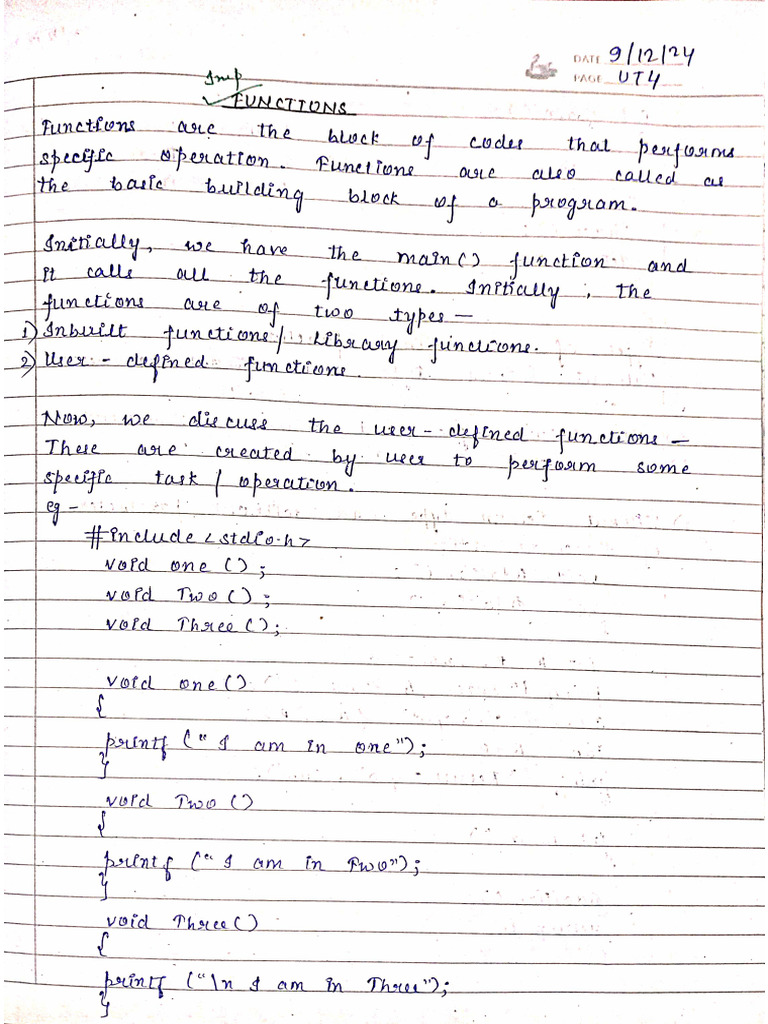 DATE 9/12/24
PAGE UT4
Imp
FUNCTIONS
Functions are the block of codes that performs
specific operation. Functions are also called as
the basic building block of a program.
Initially, we have the main() function and
it calls all the functions. Initially, the
functions are of two types —
1) Inbuilt functions / Library functions.
2) User - defined functions.
Now, we discuss the user-defined functions —
These are created by user to perform some
specific task / operation.
eg -
#include <stdio.h>
void one ();
void Two ();
void Three ();
void one ()
{
printf (" I am in one");
}
void Two ()
{
printf (" I am in Two");
}
void Three ()
{
printf ("\n I am in Three");
}